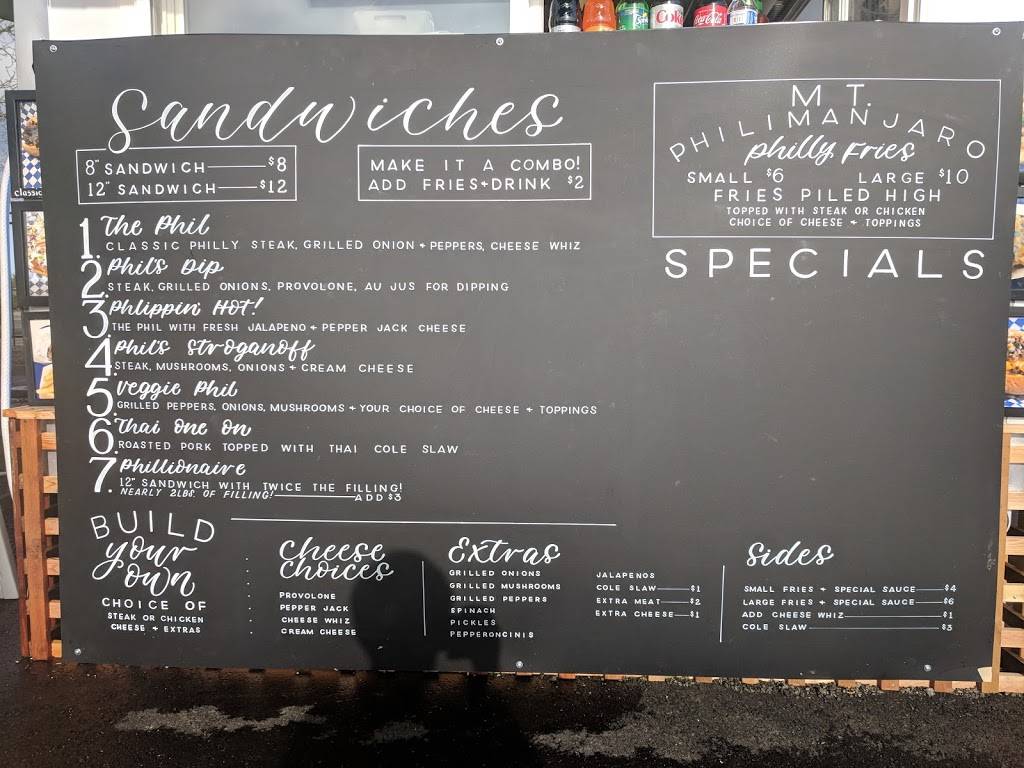 Sandwiches
8" SANDWICH $8
12" SANDWICH $12
MAKE IT A COMBO!
ADD FRIES+DRINK $2
1. The Phil
CLASSIC PHILLY STEAK, GRILLED ONION + PEPPERS, CHEESE WHIZ
2. Phil's Dip
STEAK, GRILLED ONIONS, PROVOLONE, AU JUS FOR DIPPING
3. Phlippin' HOT!
THE PHIL WITH FRESH JALAPENO + PEPPER JACK CHEESE
4. Phil's Stroganoff
STEAK, MUSHROOMS, ONIONS + CREAM CHEESE
5. Veggie Phil
GRILLED PEPPERS, ONIONS, MUSHROOMS + YOUR CHOICE OF CHEESE + TOPPINGS
6. Thai One On
ROASTED PORK TOPPED WITH THAI COLE SLAW
7. Phillionaire
12" SANDWICH WITH TWICE THE FILLING!
NEARLY 2LBS. OF FILLING! ADD $3
MT.
PHILIMANJARO
philly Fries
SMALL $6 LARGE $10
FRIES PILED HIGH
TOPPED WITH STEAK OR CHICKEN
CHOICE OF CHEESE + TOPPINGS
SPECIALS
BUILD
your
own
CHOICE OF
STEAK OR CHICKEN
CHEESE + EXTRAS
Cheese
Choices
PROVOLONE
PEPPER JACK
CHEESE WHIZ
CREAM CHEESE
Extras
GRILLED ONIONS
GRILLED MUSHROOMS
GRILLED PEPPERS
SPINACH
PICKLES
PEPPERONCINIS
JALAPENOS
COLE SLAW $1
EXTRA MEAT $2
EXTRA CHEESE $1
Sides
SMALL FRIES + SPECIAL SAUCE $4
LARGE FRIES + SPECIAL SAUCE $6
ADD CHEESE WHIZ $1
COLE SLAW $3
classic
Coke
Coca-Cola